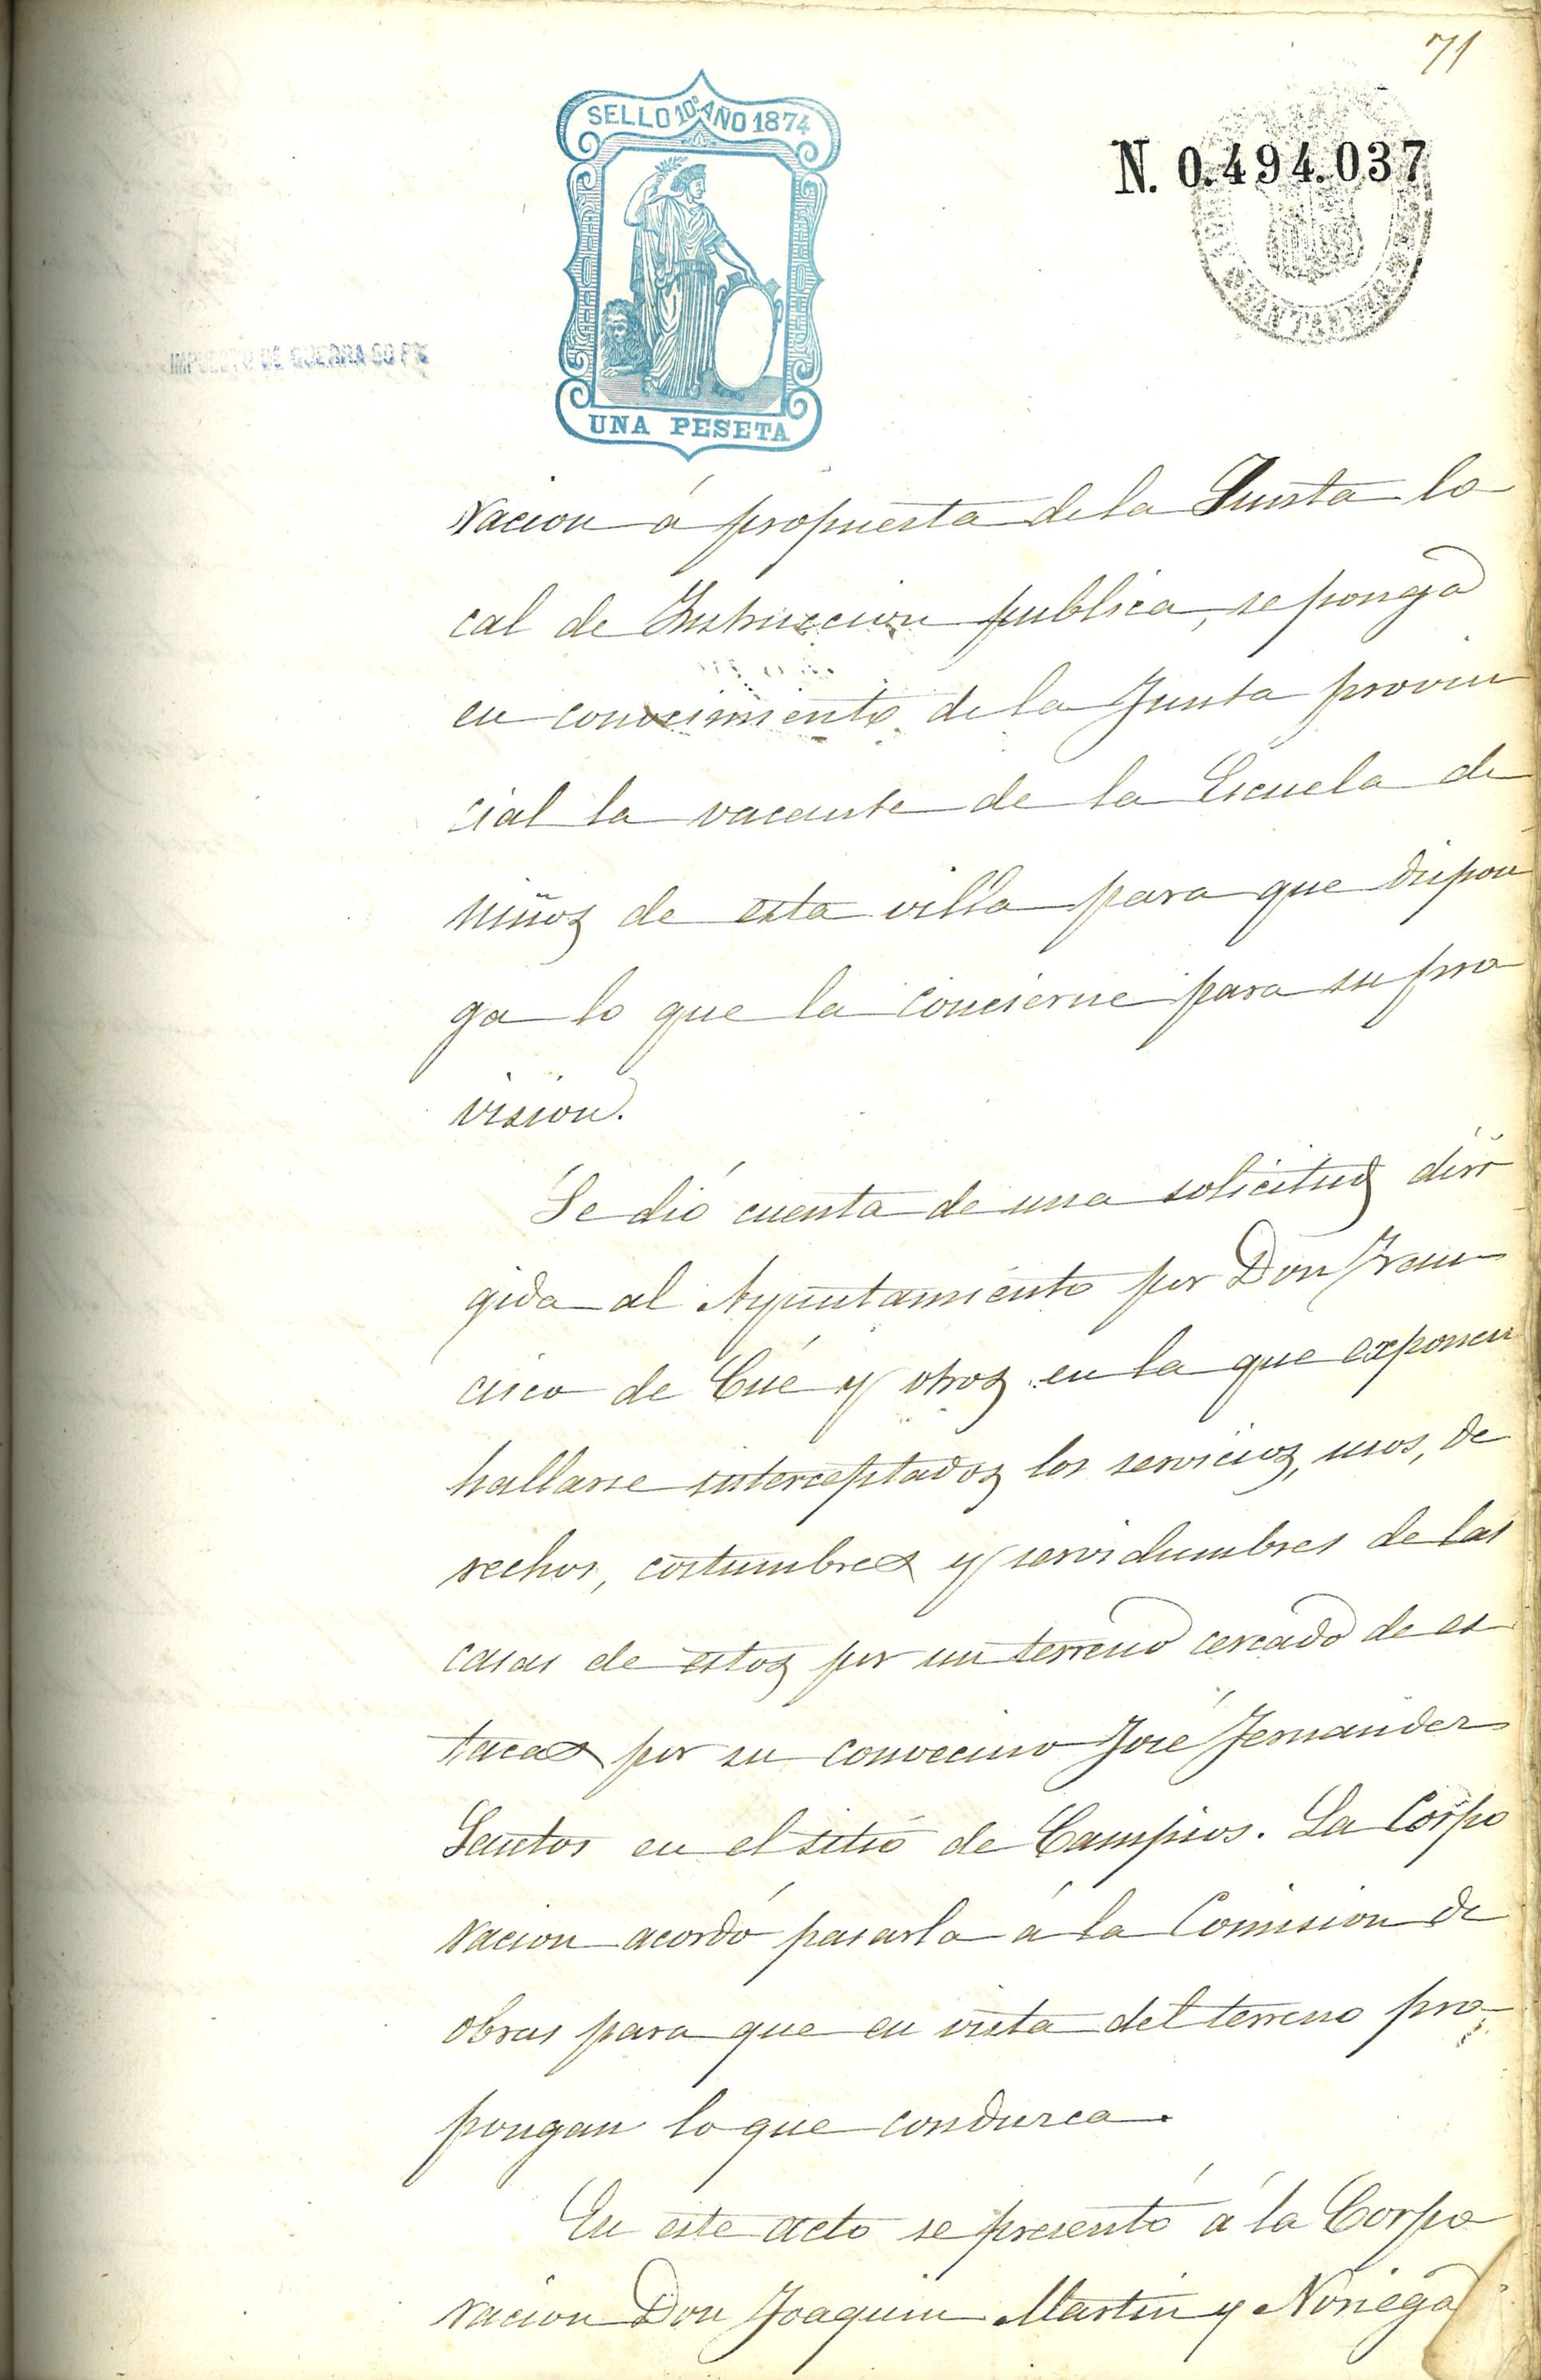 71
SELLO 10º AÑO 1874
N. 0.494.037
IMPUESTO DE GUERRA 50 P%
UNA PESETA
racion á propuesta de la Junta lo
cal de Instruccion publica, se ponga
en conocimiento de la Junta provin
cial la vacante de la Escuela de
niños de esta villa para que dispon
ga lo que la concierne para su pro
vision.
Se dió cuenta de una solicitud diri
gida al Ayuntamiento por Don Fran
cisco de Cué y otros en la que exponen
hallarse interceptados los servicios, usos, de
rechos, costumbres y servidumbres de las
casas de estos por un terreno cercado de es
tacas por su convecino José Fernandez
Santos en el sitio de Campios. La Corpo
racion acordó pasarla á la Comision de
obras para que en vista del terreno pro
pongan lo que conduzca.
En este acto se presentó á la Corpo
racion Don Joaquin Martin y Noriega